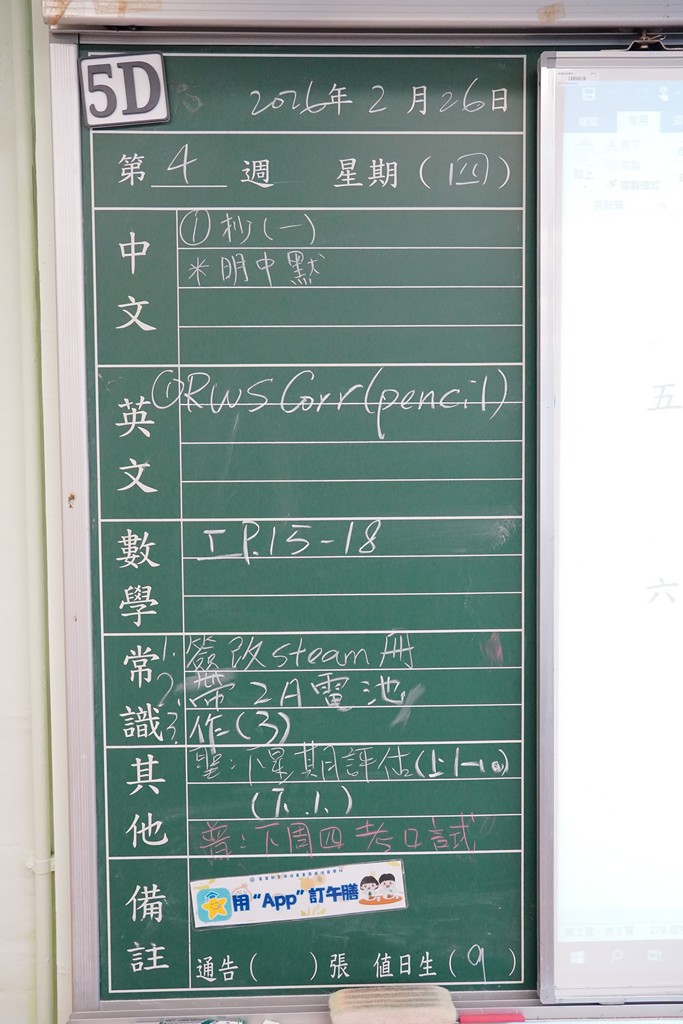 5D
2026年2月26日
第 4 週 星期(四)
中文
① 杪(一)
*明中默
英文
①RWS Corr(pencil)
數學
工P.15-18
常識
1. 簽改steam冊
2. 帶2A電池
3. 作(3)
其他
聖:下星期評估(上1-10)
(下.1.)
普:下周四考口試
備註
用“App”訂午膳
通告( )張 值日生(9)
五
六